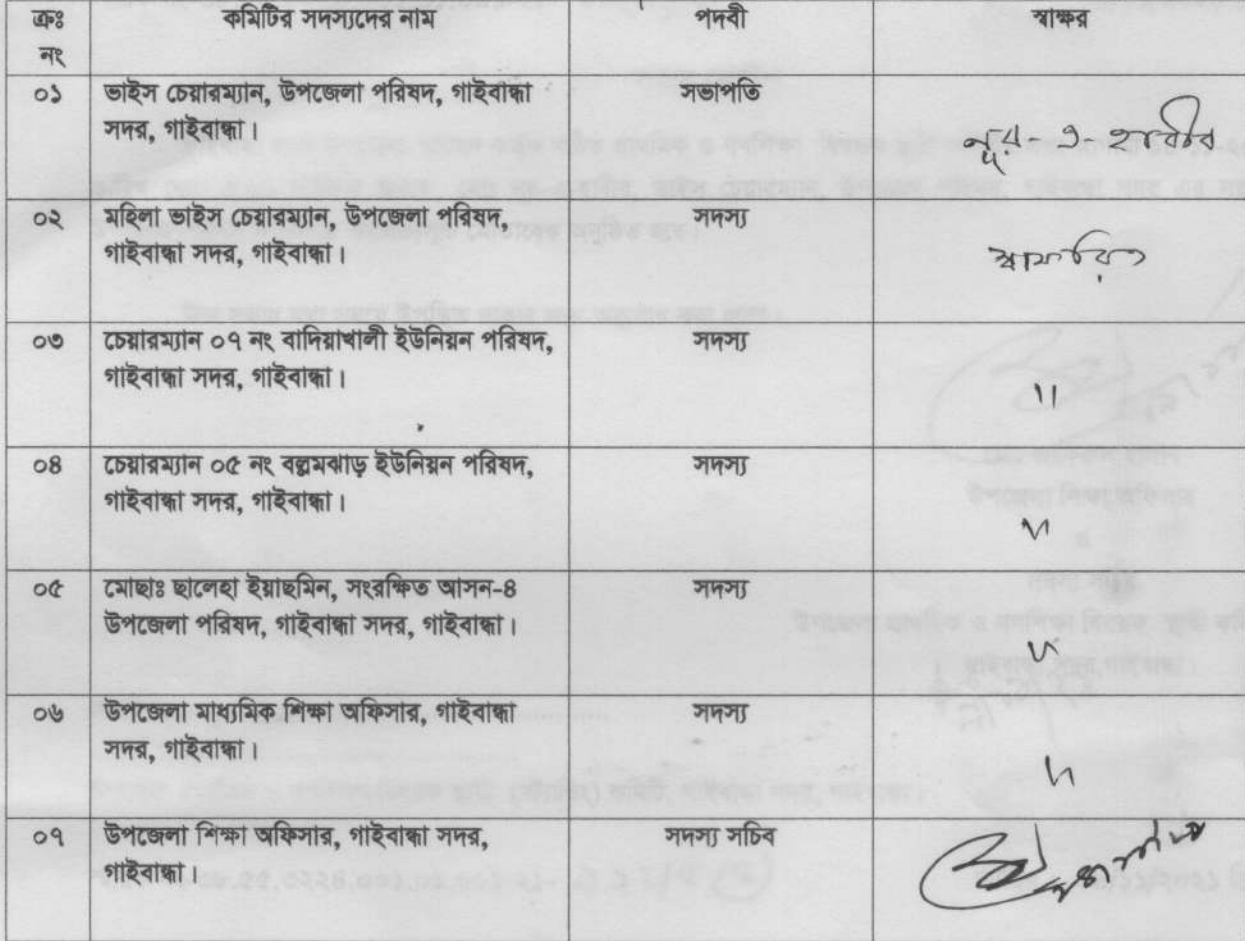 ক্রঃ নং	কমিটির সদস্যদের নাম	পদবী	স্বাক্ষর
০১	ভাইস চেয়ারম্যান, উপজেলা পরিষদ, গাইবান্ধা	সভাপতি
সদর, গাইবান্ধা।	নূর এ হাবীব
০২	মহিলা ভাইস চেয়ারম্যান, উপজেলা পরিষদ,	সদস্য
গাইবান্ধা সদর, গাইবান্ধা।	স্বাক্ষরিত
০৩	চেয়ারম্যান ০৭ নং বাদিয়াখালী ইউনিয়ন পরিষদ,	সদস্য
গাইবান্ধা সদর, গাইবান্ধা।	"
০৪	চেয়ারম্যান ০৫ নং বল্লমঝাড় ইউনিয়ন পরিষদ,	সদস্য
গাইবান্ধা সদর, গাইবান্ধা।	"
০৫	মোছাঃ ছালেহা ইয়াছমিন, সংরক্ষিত আসন-৪	সদস্য
উপজেলা পরিষদ, গাইবান্ধা সদর, গাইবান্ধা।	"
০৬	উপজেলা মাধ্যমিক শিক্ষা অফিসার, গাইবান্ধা	সদস্য
সদর, গাইবান্ধা।	"
০৭	উপজেলা শিক্ষা অফিসার, গাইবান্ধা সদর,	সদস্য সচিব
গাইবান্ধা।